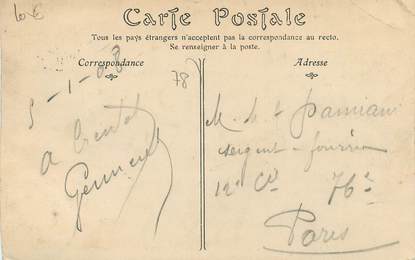 10€
Carte Postale
Tous les pays étrangers n'acceptent pas la correspondance au recto.
Se renseigner à la poste.
Correspondance
78
5-1-08
a bientot
Adresse
Damiani
sergent-fourrier
12e Cie 76e
Paris